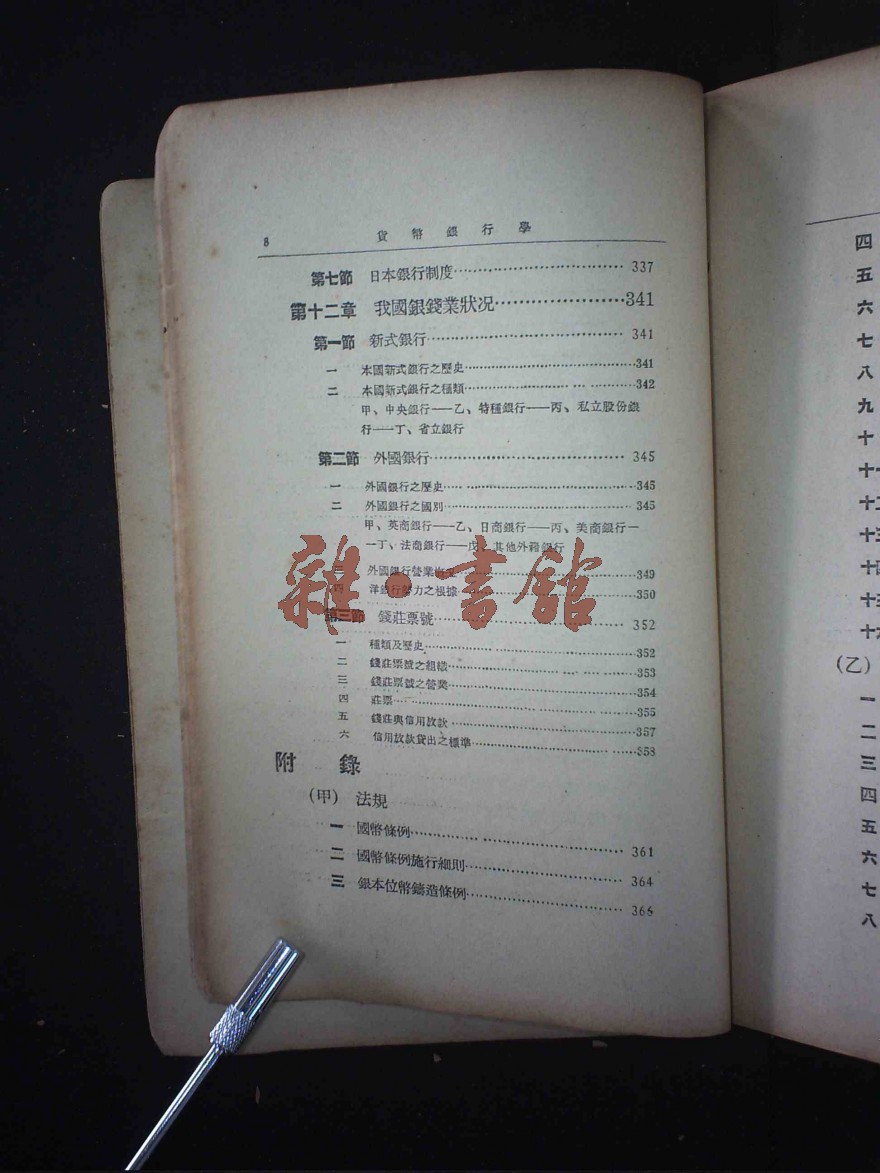 8 貨幣銀行學
第七節 日本銀行制度 337
第十二章 我國銀錢業狀况 341
第一節 新式銀行 341
一 本國新式銀行之歷史 341
二 本國新式銀行之種類 342
甲、中央銀行——乙、特種銀行——丙、私立股份銀
行——丁、省立銀行
第二節 外國銀行 345
一 外國銀行之歷史 345
二 外國銀行之國別 345
甲、英商銀行——乙、日商銀行——丙、美商銀行—
—丁、法商銀行——戊、其他外籍銀行
三 外國銀行營業 349
四 洋銀行勢力之根據 350
第三節 錢莊票號 352
一 種類及歷史 352
二 錢莊票號之組織 353
三 錢莊票號之營業 354
四 莊票 355
五 錢莊與信用放款 357
六 信用放款貸出之標準 358
附 錄
(甲) 法規
一 國幣條例 361
二 國幣條例施行細則 364
三 銀本位幣鑄造條例 366
雜·書館
四
五
六
七
八
九
十
十一
十二
十三
十四
十五
十六
(乙)
一
二
三
四
五
六
七
八